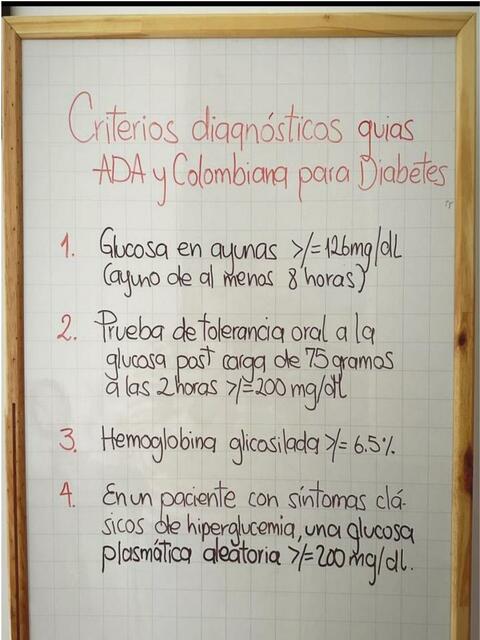 Criterios diagnósticos guias
ADA y Colombiana para Diabetes
1. Glucosa en ayunas >/= 126mg/dL
(ayuno de al menos 8 horas)
2. Prueba de tolerancia oral a la
glucosa post carga de 75 gramos
a las 2 horas >/= 200 mg/dL
3. Hemoglobina glicosilada >/= 6.5%
4. En un paciente con síntomas clá-
sicos de hiperglucemia, una glucosa
plasmática aleatoria >/= 200 mg/dl.